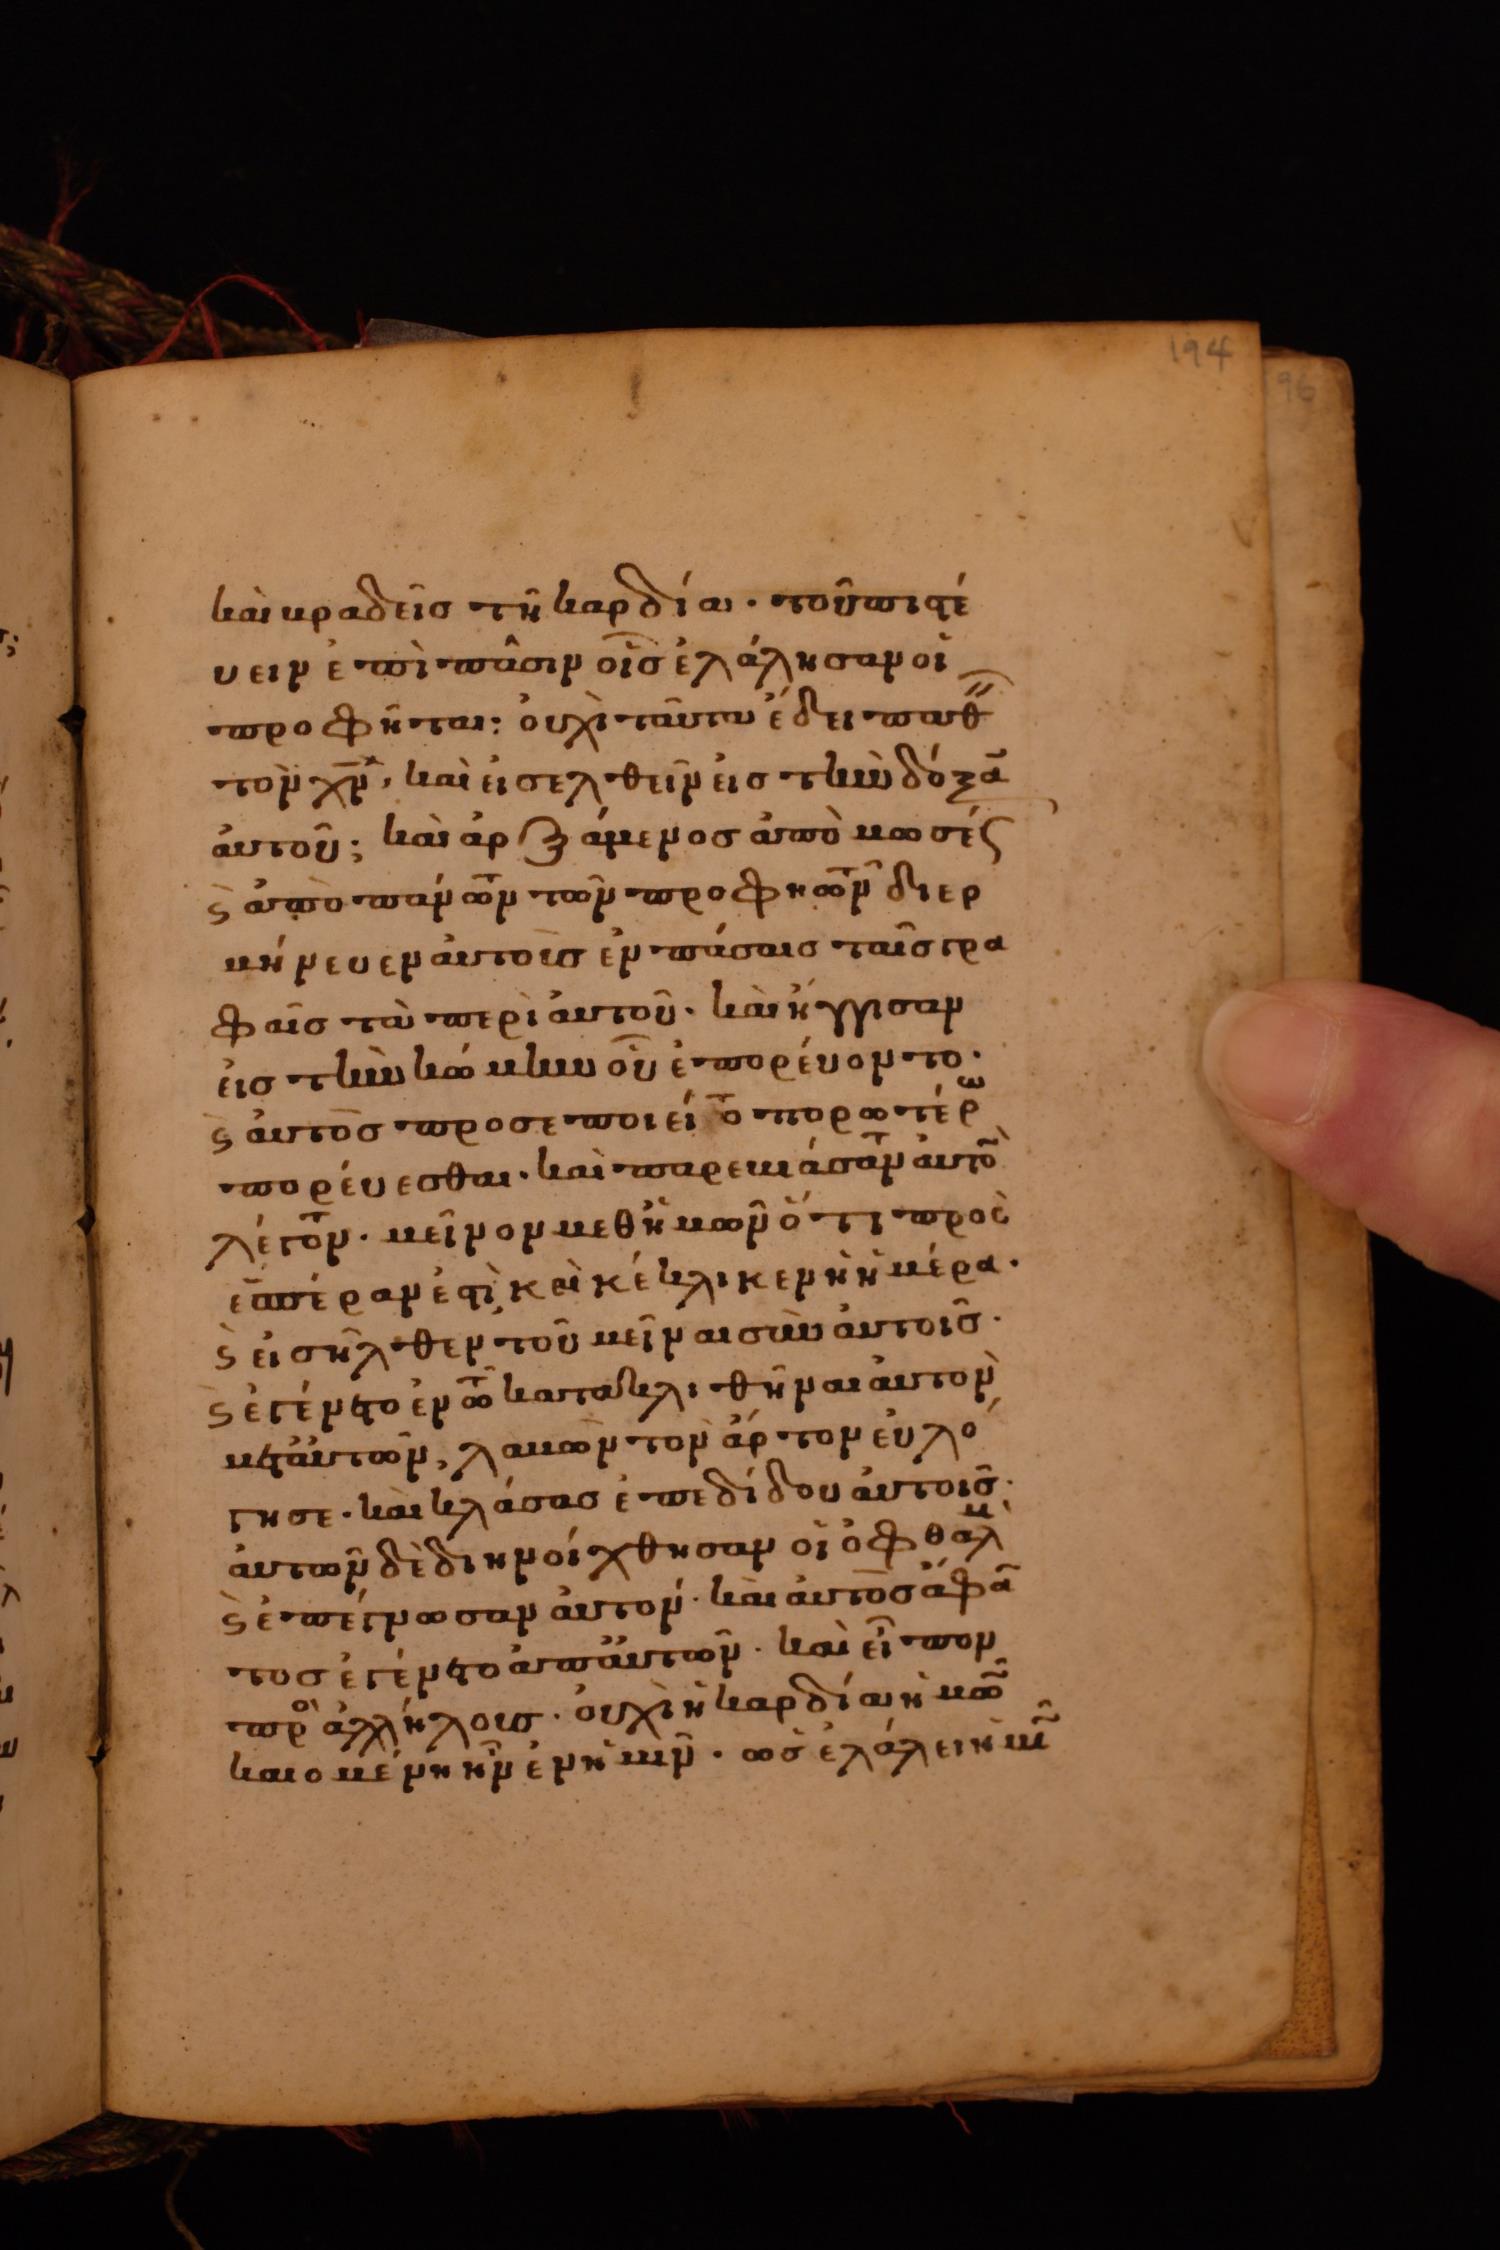 194
96
καὶ βραδεῖς τῆ καρδία· τοῦ πιστέ
υειν ἐπὶ πᾶσιν οἷς ἐλάλησαν οἱ
προφῆται: οὐχὶ ταῦτα ἔδει παθ
τὸν χν, καὶ εἰσελθεῖν εἰς τὴν δόξα
αὐτοῦ; καὶ ἀρξάμενος ἀπὸ μωσέ
ϛ ἀπὸ πάντων τῶν προφητῶν διερ
μήνευεν αὐτοῖς ἐν πάσαις ταῖς γρα
φαῖς τὰ περὶ αὐτοῦ· καὶ ἤγγισαν
εἰς τὴν κώμην οὗ ἐπορεύοντο·
ϛ αὐτὸς προσεποιεῖτο πορωτέρω
πορεύεσθαι· καὶ παρεβιάσαντ αὐτὸ
λέγοντ· μεῖνον μεθ ἡμῶν ὅτι προς
ἑσπέραν ἐστὶ καὶ κέκλικεν ἡ ἡμέρα·
ϛ εἰσῆλθεν τοῦ μεῖναι σὺν αὐτοῖς·
ϛ ἐγένετο ἐν τῶ κατακλιθῆναι αὐτὸν
μετ αὐτῶν, λαβὼν τὸν ἄρτον εὐλό
γησε· καὶ κλάσας ἐπεδίδου αὐτοῖς·
αὐτῶν δὲ διηνοίχθησαν οἱ ὀφθαλμ
ϛ ἐπέγνωσαν αὐτόν· καὶ αὐτὸς ἄφα
τος ἐγένετο ἀπ αὐτῶν· καὶ εἶπον
πρὸ ἀλλήλους· οὐχὶ ἡ καρδία ἡμῶ
καιομένη ἦν ἐν ἡμῖν· ὡς ἐλάλει ἡμῖ